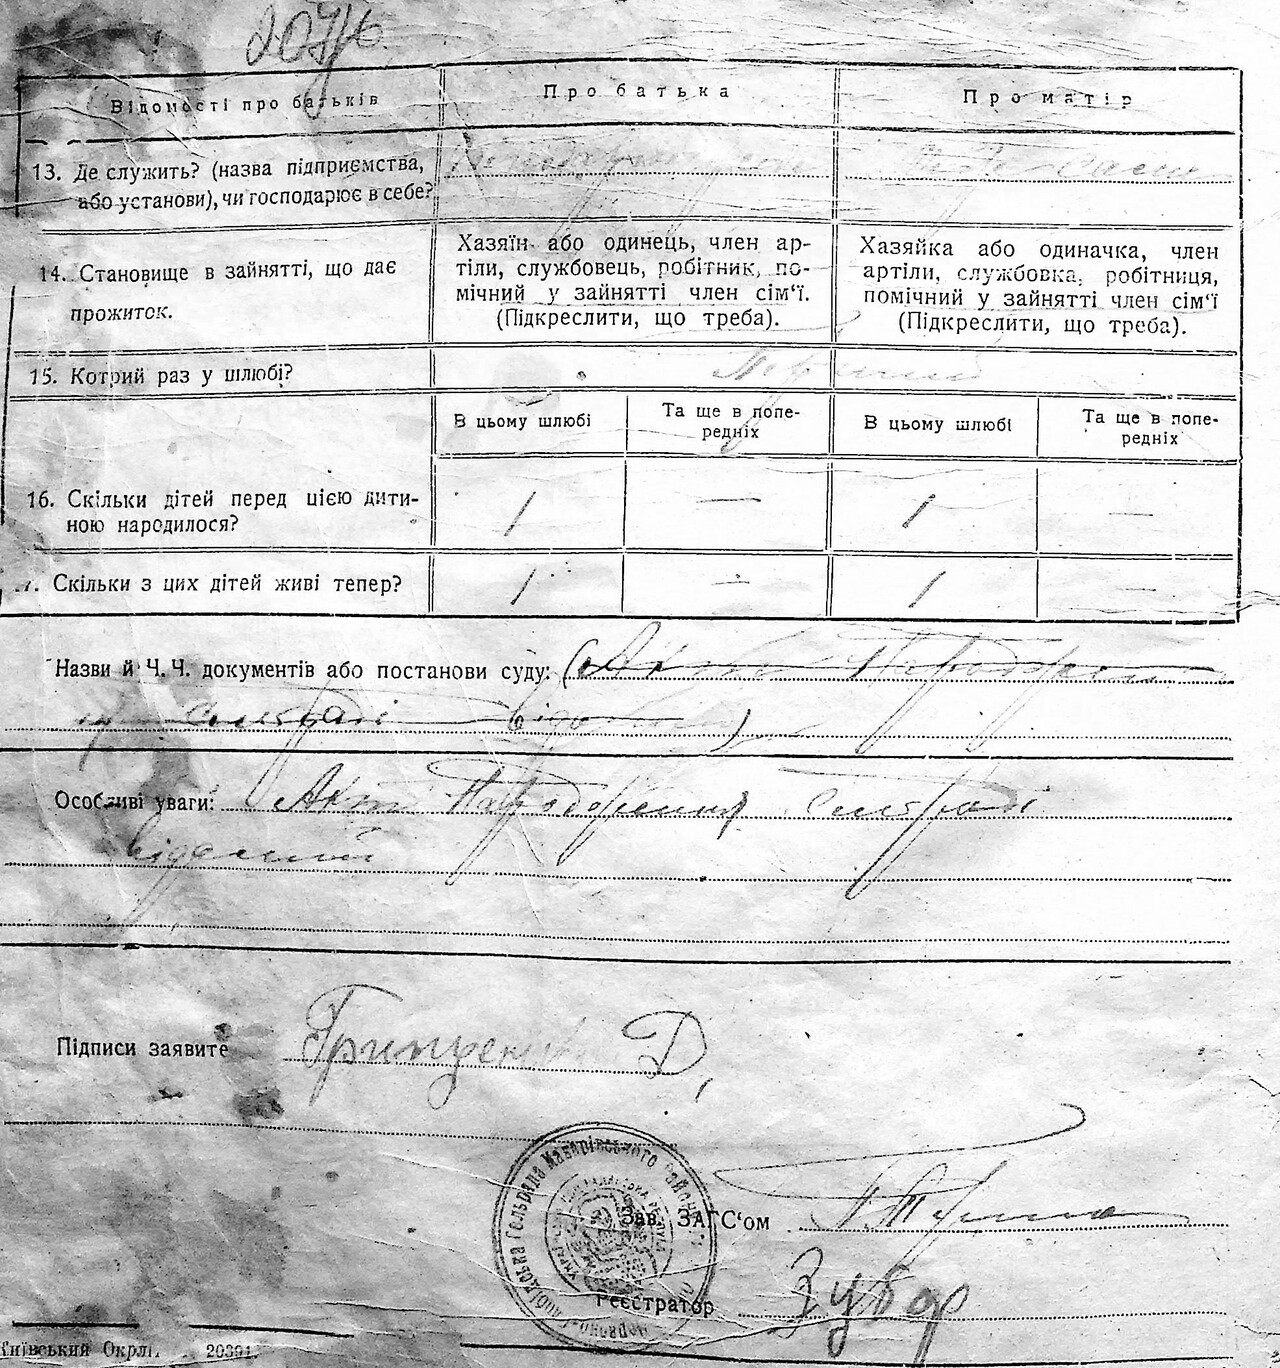 Відомості про батьків
Про батька
Про матір
13. Де служить? (назва підприємства,
або установи), чи господарює в себе?
14. Становище в зайнятті, що дає
прожиток.
Хазяїн або одинець, член ар-
тіли, службовець, робітник, по-
мічний у зайнятті член сім‘ї.
(Підкреслити, що треба).
Хазяйка або одиначка, член
артіли, службовка, робітниця,
помічний у зайнятті член сім‘ї
(Підкреслити, що треба).
15. Котрий раз у шлюбі?
В цьому шлюбі
Та ще в попе-
редніх
В цьому шлюбі
Та ще в попе-
редніх
16. Скільки дітей перед цією дити-
ною народилося?
1 — 1 —
7. Скільки з цих дітей живі тепер?
1 — 1 —
Назви й Ч. Ч. документів або постанови суду: (Акт Народження
Сельраді
Особливі уваги: Акт Народження Сельраді
Підписи заявите Гриценко Д,
Макарівського Району
Зав. ЗАГС‘ом
Реєстратор
Київський Окрліт. 20391.